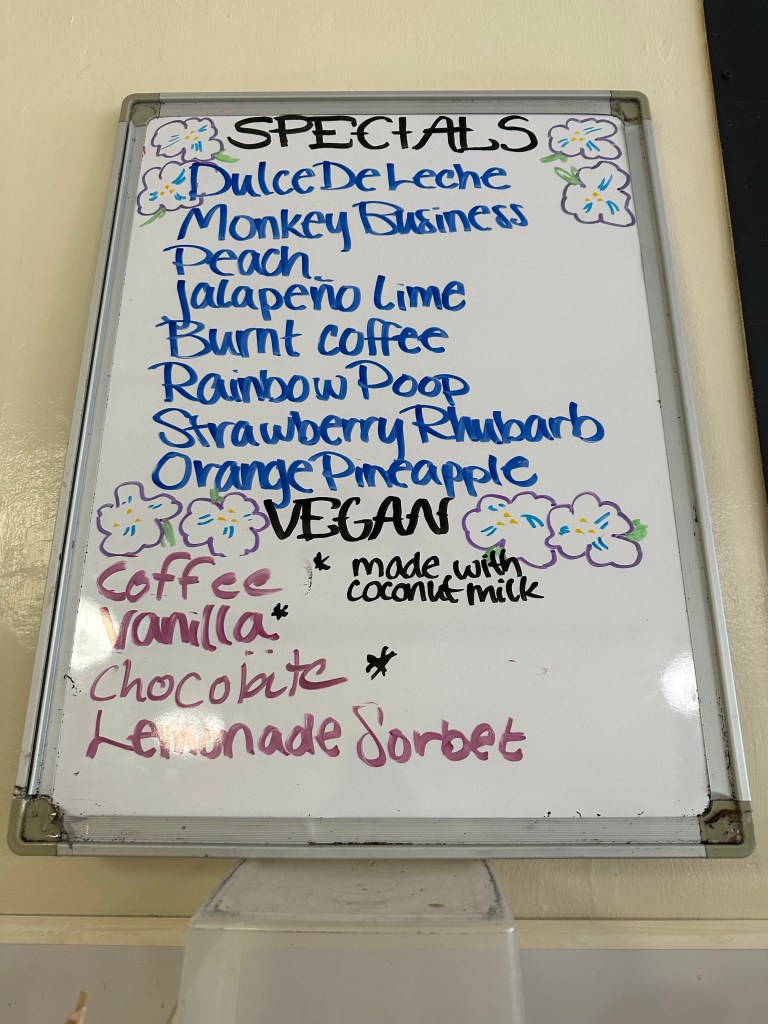 SPECIALS
Dulce De Leche
Monkey Business
Peach
Jalapeño Lime
Burnt Coffee
Rainbow Poop
Strawberry Rhubarb
Orange Pineapple
VEGAN
Coffee * made with
coconut milk
Vanilla *
Chocolate *
Lemonade Sorbet